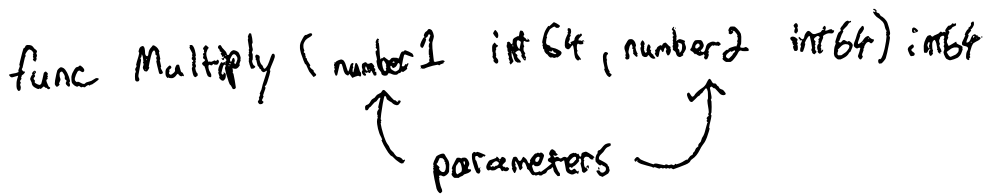 func Multiply (number1 int64, number2 int64) int64
parameters